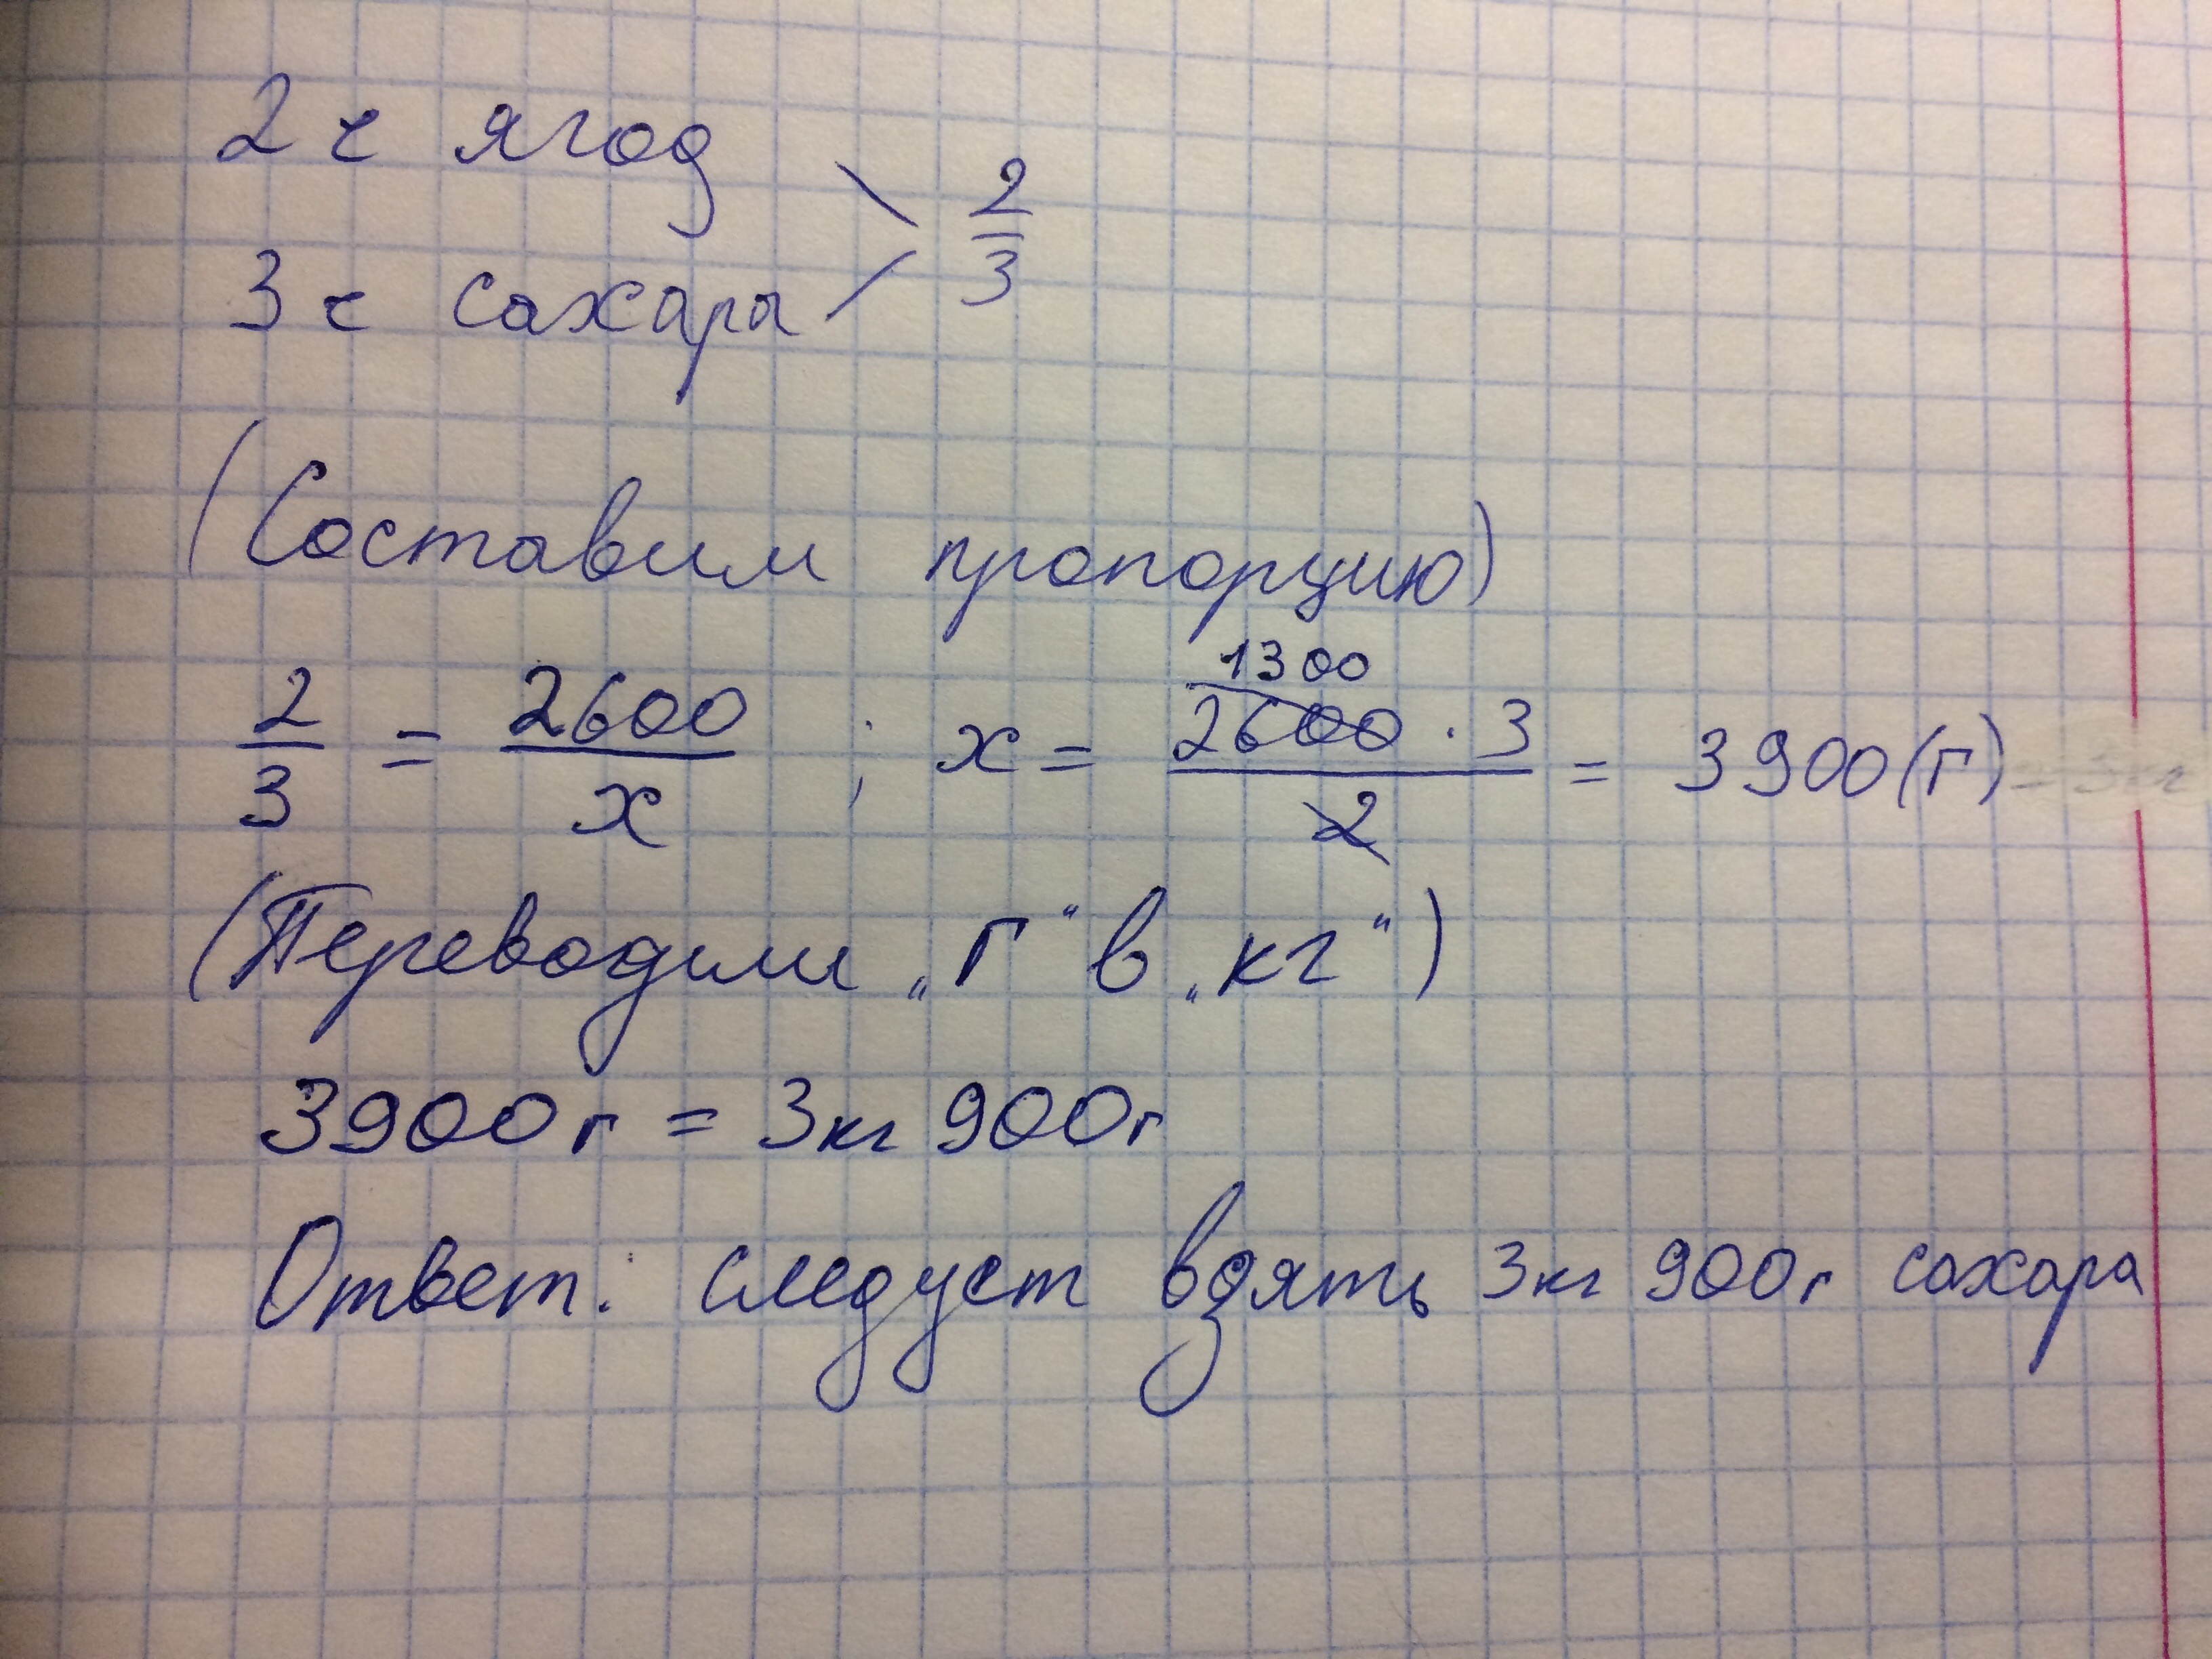 2 ч ягод
3 ч сахара
2/3
(Составим пропорцию)
2/3 = 2600/x ; x = 1300 2600 · 3 / 2 = 3900(г)
(Переводим „г“ в „кг“)
3900г = 3кг 900г
Ответ: следует взять 3кг 900г сахара